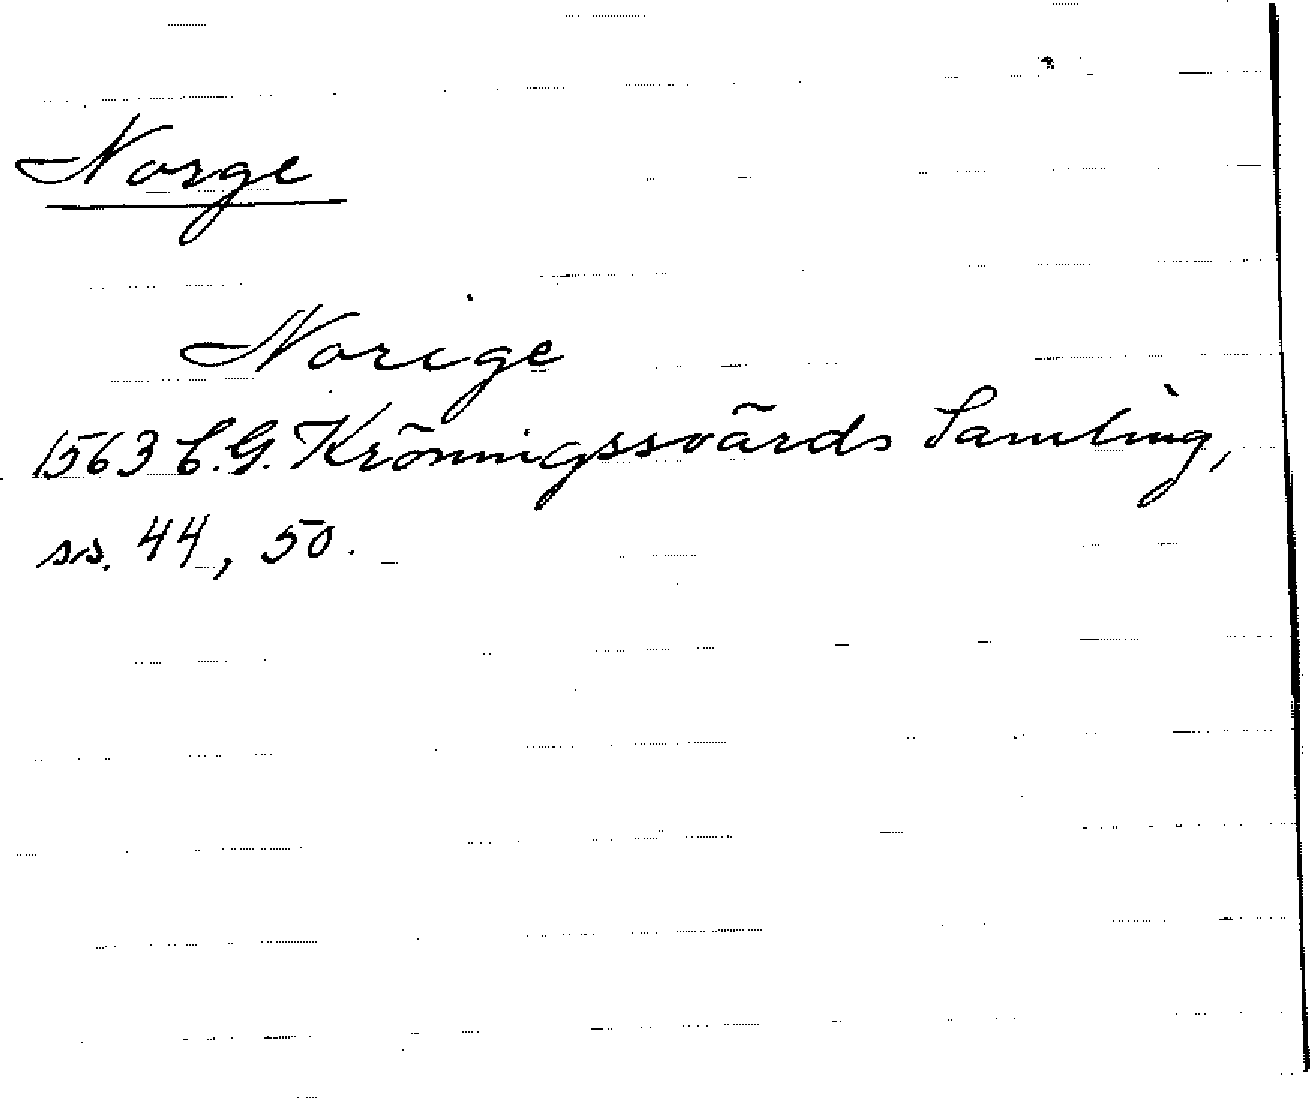 Norge
Norige
1563 C.G. Kröningssvärds Samling,
ss. 44, 50.